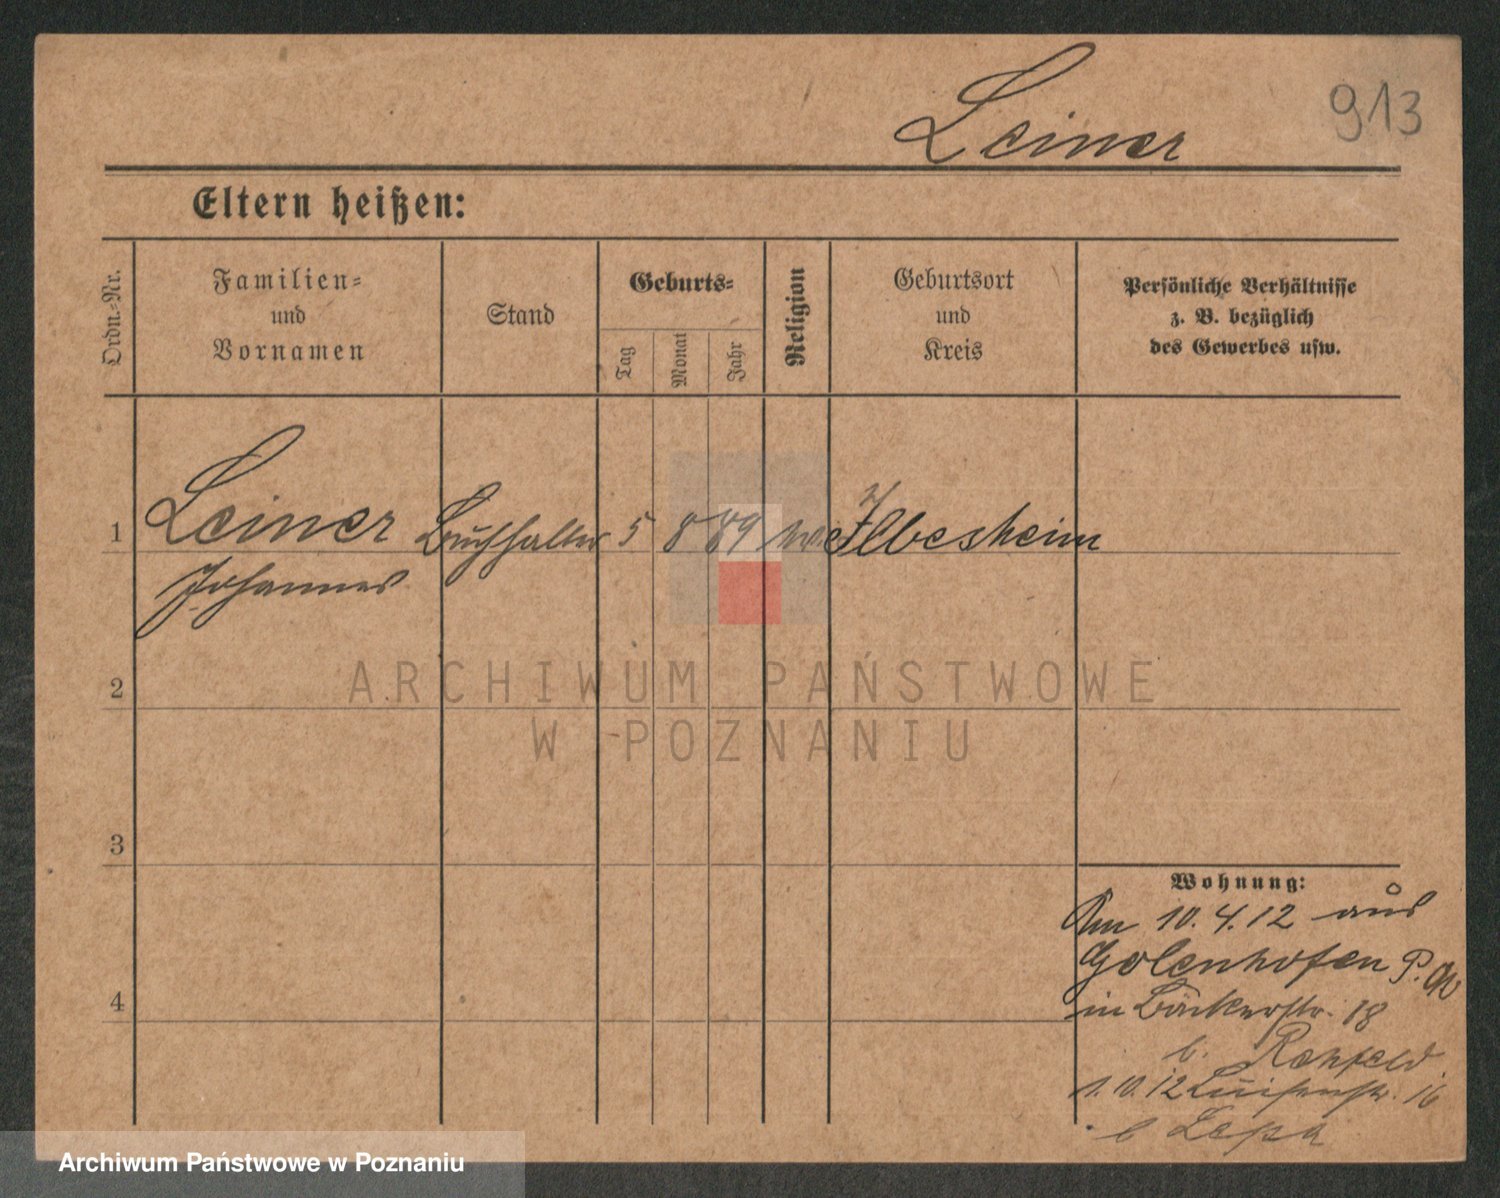 Leiner
913
Eltern heißen:
Ordn.-Nr.
Familien-
und
Vornamen
Stand
Geburts-
Tag
Monat
Jahr
Religion
Geburtsort
und
Kreis
Persönliche Verhältnisse
z. B. bezüglich
des Gewerbes usw.
1
Leiner Buchhalter 5 8 89 Ilbesheim
Johannes
2
3
4
Wohnung:
Am 10.4.12 aus
Golenhofen P.
in Bäckerstr. 18
b. Rehfeld
1.10.12 Luisenstr. 16
b Lepa
ARCHIWUM PAŃSTWOWE
W POZNANIU
Archiwum Państwowe w Poznaniu